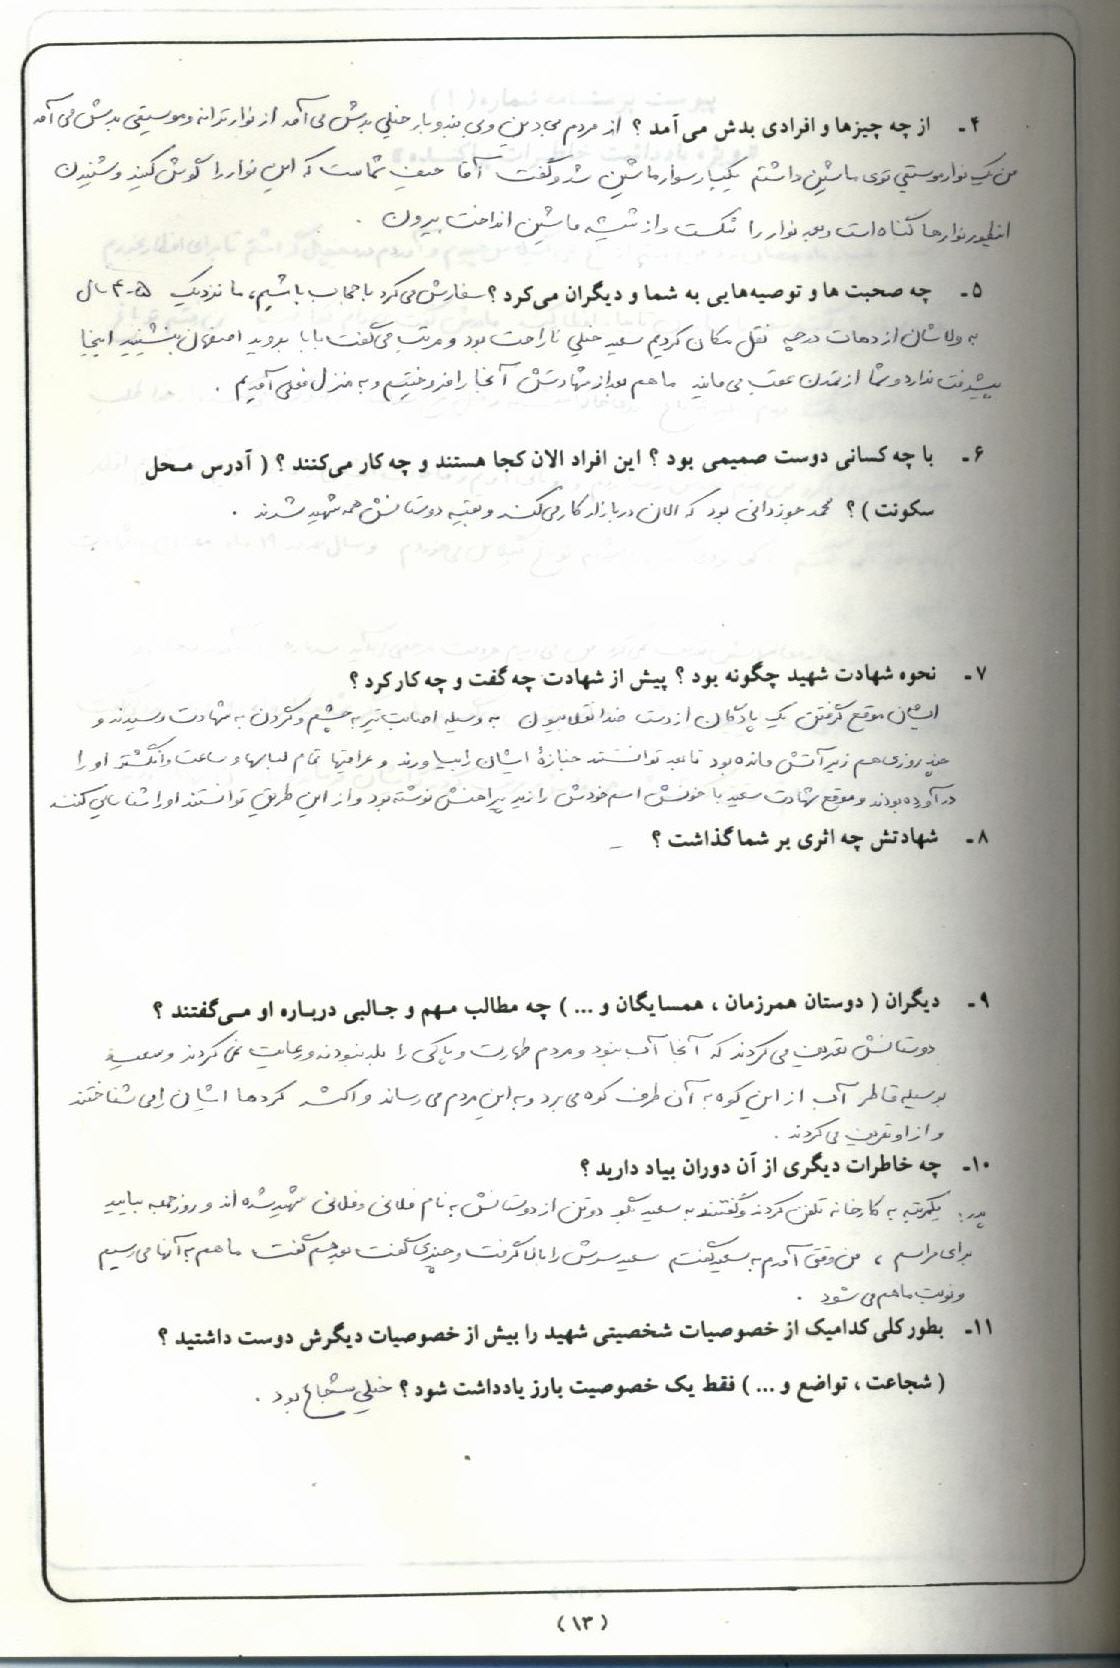 ۴ـ از چه چیزها و افرادی بدش می‌آمد ؟ از مردم بی دین و بی بند و بار خیلی بدش می آمد از نوار ترانه و موسیقی بدش می آمد
من یک نوار موسیقی توی ماشین داشتم یکبار سوار ماشین شد و گفت آقا حیف شماست که این نوار را گوش کنید و شنیدن
اینطور نوارها گناه است و بعد نوار را شکست و از شیشه ماشین انداخت بیرون .
۵ـ چه صحبت ها و توصیه‌هایی به شما و دیگران می‌کرد ؟ سفارش می کرد با حجاب باشیم، ما نزدیک ۵-۴ سال
به ولاشان از دهات درچه نقل مکان کردیم سعید خیلی ناراحت بود و مرتب می گفت بابا بروید اصفهان بنشینید اینجا
پیشرفت ندارد و شما از تمدن عقب می مانید ما هم بعد از شهادتش آنجا را فروختیم و به منزل فعلی آمدیم .
۶ـ با چه کسانی دوست صمیمی بود ؟ این افراد الان کجا هستند و چه کار می‌کنند ؟ ( آدرس محل
سکونت ) ؟ محمد جوزدانی بود که الان در بازار کار می کند و بقیه دوستانش همه شهید شدند .
۷ـ نحوه شهادت شهید چگونه بود ؟ پیش از شهادت چه گفت و چه کار کرد ؟
ایشان موقع گرفتن یک پادگان از دست ضد انقلابیون به وسیله اصابت تیر به چشم و گردن به شهادت رسیدند و
چند روزی هم زیر آتش مانده بود تا بعد توانستند جنازهٔ ایشان را بیاورند و عراقیها تمام لباسها و ساعت و انگشتر او را
در آورده بودند و موقع شهادت سعید با خونش اسم خودش را زیر پیراهنش نوشته بود و از این طریق توانستند او را شناسایی کنند
۸ـ شهادتش چه اثری بر شما گذاشت ؟ -
۹ـ دیگران ( دوستان همرزمان ، همسایگان و ... ) چه مطالب مهم و جالبی درباره او می‌گفتند ؟
دوستانش تعریف می کردند که آنجا آب نبود و مردم طهارت و پاکی را بلد نبودند و رعایت نمی کردند و سعید
بوسیله قاطر آب از این کوه به آن طرف کوه می برد و به این مردم می رساند و اکثر کردها ایشان را می شناختند
و از او تعریف می کردند .
۱۰ـ چه خاطرات دیگری از آن دوران بیاد دارید ؟
پدر: یکمرتبه به کارخانه تلفن کردند و گفتند به سعید بگو دو تن از دوستانش به نام فلانی و فلانی شهید شده اند و روز جمعه بیایید
برای مراسم ، من وقتی آمدم به سعید گفتم سعید سرش را بالا گرفت و چیزی نگفت بعد هم گفت ما هم به آنها می رسیم
و نوبت ما هم می شود .
۱۱ـ بطور کلی کدامیک از خصوصیات شخصیتی شهید را بیش از خصوصیات دیگرش دوست داشتید ؟
( شجاعت ، تواضع و ... ) فقط یک خصوصیت بارز یادداشت شود ؟ خیلی شجاع بود .
(۱۳)